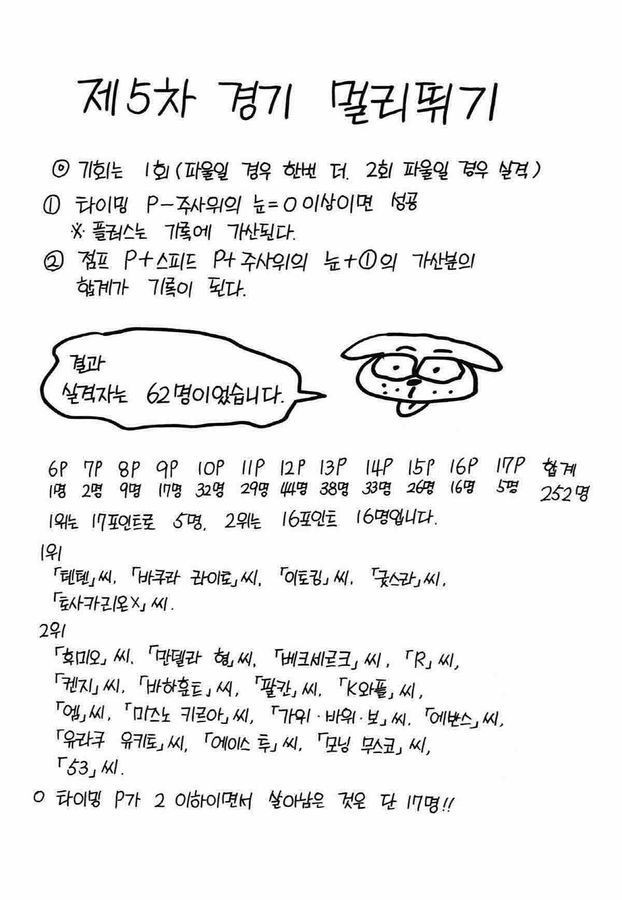 제5차 경기 멀리뛰기
◎ 기회는 1회(파울일 경우 한번 더. 2회 파울일 경우 실격)
① 타이밍 P-주사위의 눈=0 이상이면 성공
※ 플러스는 기록에 가산된다.
② 점프 P+스피드 P+주사위의 눈+①의 가산분의
합계가 기록이 된다.
결과
실격자는 62명이었습니다.
6P 7P 8P 9P 10P 11P 12P 13P 14P 15P 16P 17P 합계
1명 2명 9명 17명 32명 29명 44명 38명 33명 26명 16명 5명 252명
1위는 17포인트로 5명, 2위는 16포인트 16명입니다.
1위
「텐텐」씨, 「바쿠라 라이로」씨, 「이토킹」씨, 「굿스라」씨,
「토사카리온X」씨.
2위
「휴미오」씨, 「만델라 형」씨, 「베크세르크」씨, 「R」씨,
「켄지」씨, 「바하효트」씨, 「팔칸」씨, 「K와플」씨,
「엠」씨, 「미즈노 키르아」씨, 「가위·바위·보」씨, 「에반스」씨,
「유라쿠 유키토」씨, 「에이스 투」씨, 「모닝 무스코」씨,
「53」씨.
○ 타이밍 P가 2 이하이면서 살아남은 것은 단 17명!!